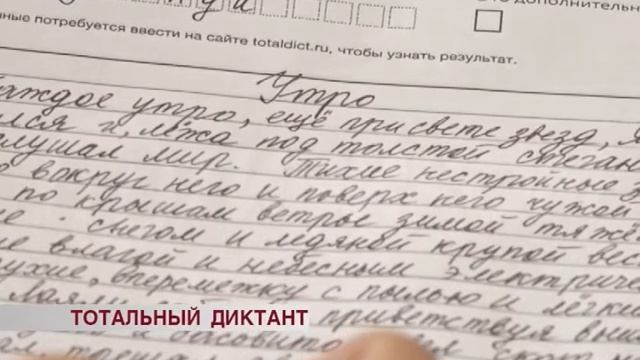 дополнительн
нные потребуется ввести на сайте totaldict.ru, чтобы узнать результат.
Утро
каждое утро, ещё при свете звезд,
лся и, лёжа под толстой стеган
слушал мир. Тихие нестройные
вокруг него и поверх него чужой
по крышам ветры зимой тяжё
снегом и ледяной крупой вес
влагой и небесным электриче
вперемежку с пылью и лёгки
приветствуя
ТОТАЛЬНЫЙ ДИКТАНТ